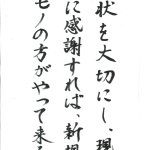 状を大切にし、現
に感謝すれば、新規
モノの方がやって来る